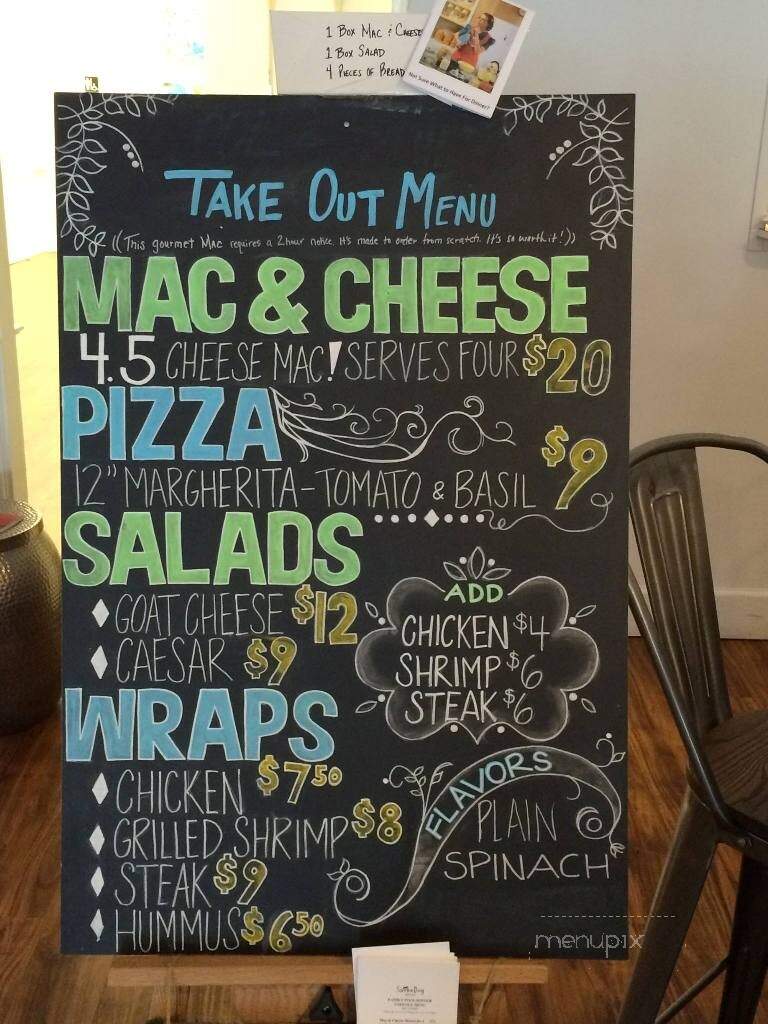 1 Box Mac & Cheese
1 Box Salad
4 Pieces of Bread
Not Sure What to Have For Dinner?
TAKE OUT MENU
((This gourmet Mac requires a 2 hour notice. It's made to order from scratch. It's so worth it!))
MAC & CHEESE
4.5 CHEESE MAC! SERVES FOUR $20
PIZZA
$9
12" MARGHERITA-TOMATO & BASIL
SALADS
GOAT CHEESE $12
CAESAR $9
ADD
CHICKEN $4
SHRIMP $6
STEAK $6
WRAPS
CHICKEN $7.50
GRILLED SHRIMP $8
STEAK $9
HUMMUS $6.50
FLAVORS
PLAIN
SPINACH
menupix